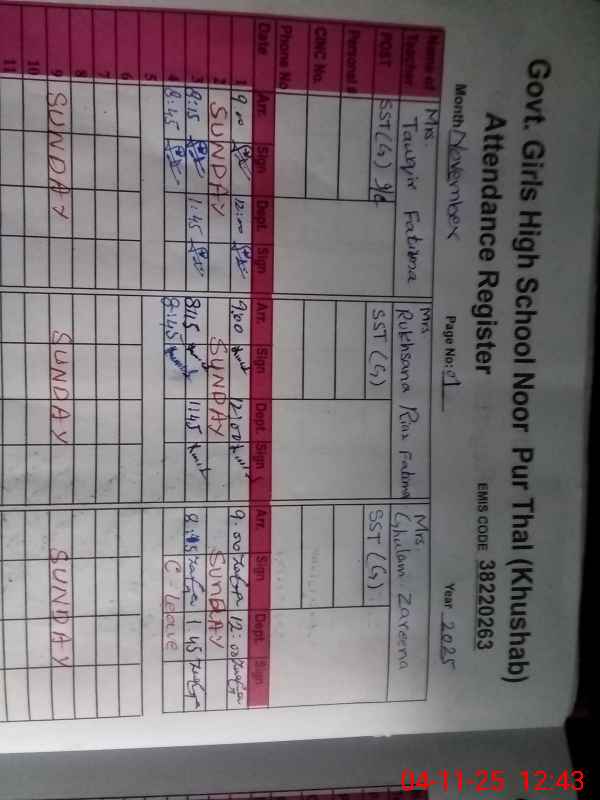 Govt. Girls High School Noor Pur Thal (Khushab)
Attendance Register
EMIS CODE 38220263
Month November Page No: 01 Year 2025
Name of Teacher Mrs. Tauqir Fatima Mrs Rukhsana Riaz Fatima Mrs. Ghulam Zareena
POST SST (G) SST (G) SST (G)
Personal #
CNIC No.
Phone No
Date Arr. Sign Dept. Sign Arr. Sign Dept. Sign Arr. Sign Dept. Sign
1 9:00 12:00 9:00 12:00 9:00 12:00
2 SUNDAY SUNDAY SUNDAY
3 8:15 1:45 8:15 1:45 8:45 1:45
4 8:45 8:45 C-Leave
5
6
7
8
9 SUNDAY SUNDAY SUNDAY
10
11
04-11-25 12:43